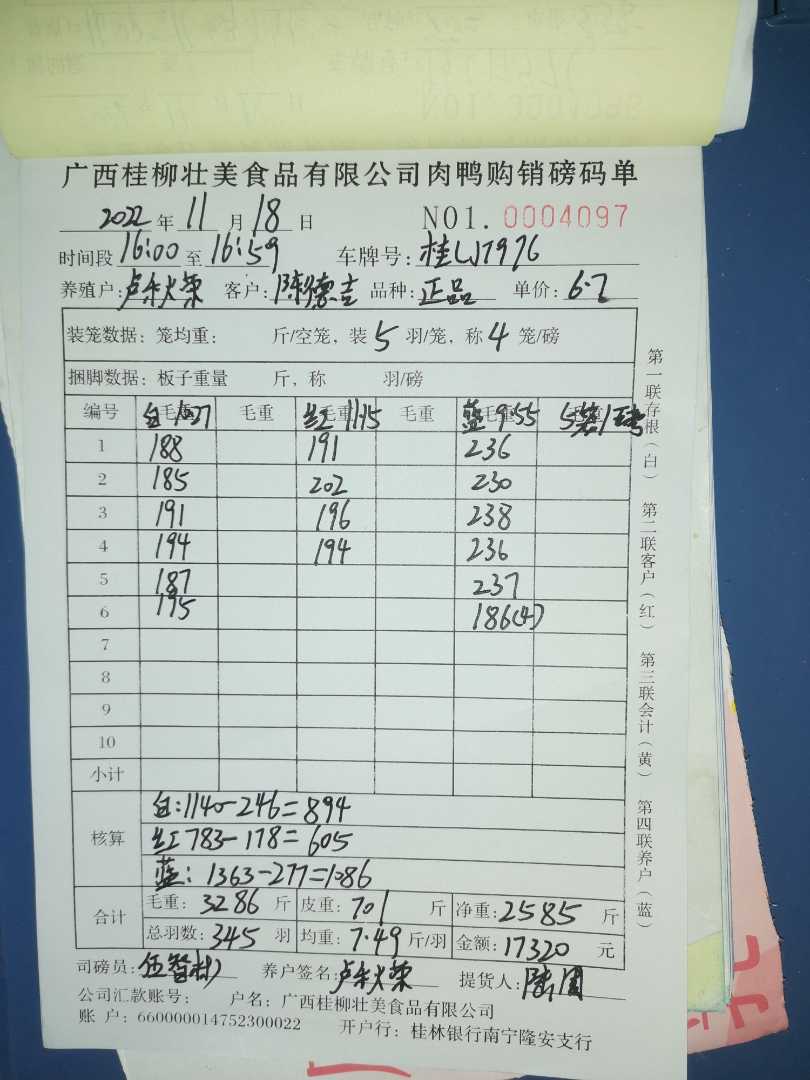 广西桂柳壮美食品有限公司肉鸭购销磅码单
2022 年 11 月 18 日 NO1. 0004097
时间段 16:00 至 16:59 车牌号: 桂 7976
养殖户: 卢 荣 客户: 陈德吉 品种: 正品 单价: 6.7
装笼数据: 笼均重: 斤/空笼, 装 5 羽/笼, 称 4 笼/磅
捆脚数据: 板子重量 斤, 称 羽/磅
编号 毛重 白 毛重 毛重 红 11.15 毛重 毛重 蓝 9.55 5装
1 188 191 236
2 185 202 230
3 191 196 238
4 194 194 236
5 187 237
6 195 186(4)
7
8
9
10
小计
核算 白:1140-246=894
红 783-178=605
蓝: 1363-277=1086
合计 毛重: 3286 斤 皮重: 701 斤 净重: 2585 斤
总羽数: 345 羽 均重: 7.49 斤/羽 金额: 17320 元
司磅员: 伍智彬 养户签名: 卢 荣 提货人: 陈
公司汇款账号: 户名: 广西桂柳壮美食品有限公司
账 户: 660000014752300022 开户行: 桂林银行南宁隆安支行
第一联存根(白) 第二联客户(红) 第三联会计(黄) 第四联养户(蓝)